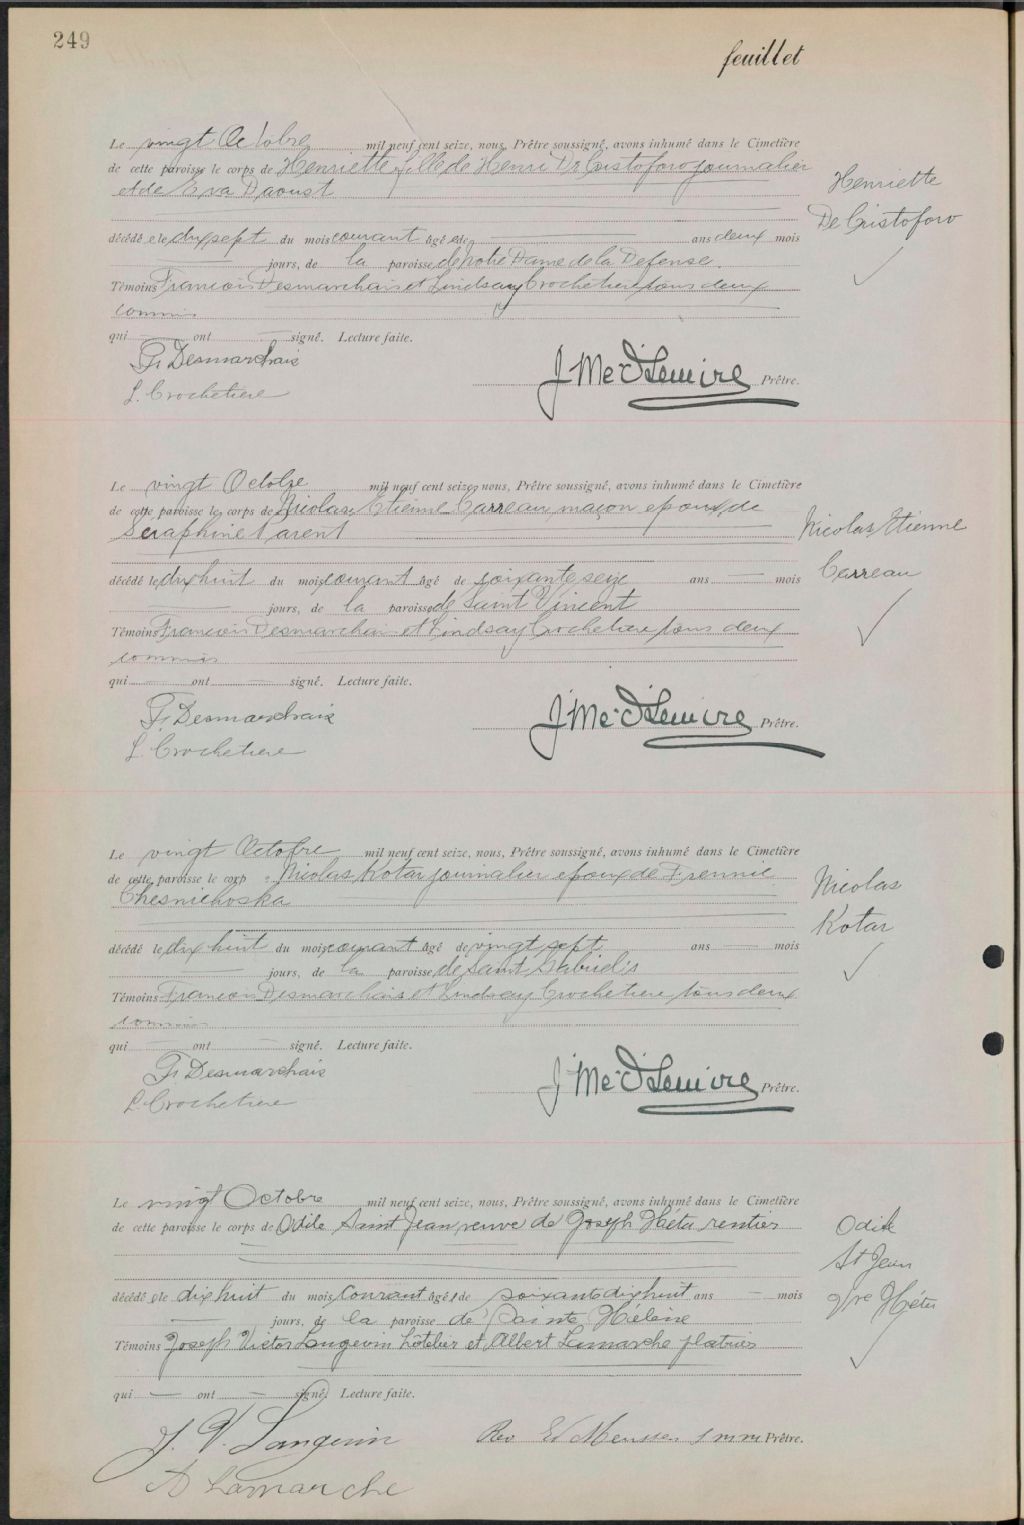 249
feuillet
Le vingt Octobre mil neuf cent seize, nous, Prêtre soussigné, avons inhumé dans le Cimetière
de cette paroisse le corps de Henriette fille de Henri De Cristoforo journalier
et de Eva Daoust
Henriette
De Cristoforo
décédée le dix sept du mois courant âgée de ans deux mois
jours, de la paroisse de Notre Dame de la Defense.
Témoins Francois Desmarchais et Lindsay Crochetiere tous deux
commis
qui ont signé. Lecture faite.
F. Desmarchais
L. Crochetiere
J Me O Lemire Prêtre.
Le vingt Octobre mil neuf cent seize, nous, Prêtre soussigné, avons inhumé dans le Cimetière
de cette paroisse le corps de Nicolas Etienne Carreau, maçon epoux de
Seraphine Parent
Nicolas Etienne
Carreau
décédé le dix huit du mois courant âgé de soixante seize ans mois
jours, de la paroisse de Saint Vincent
Témoins Francois Desmarchais et Lindsay Crochetiere tous deux
commis
qui ont signé. Lecture faite.
F. Desmarchais
L. Crochetiere
J Me O Lemire Prêtre.
Le vingt Octobre mil neuf cent seize, nous, Prêtre soussigné, avons inhumé dans le Cimetière
de cette paroisse le corp Nicolas Kotar journalier epoux de Frennie
Chesniehoska
Nicolas
Kotar
décédé le dix huit du mois courant âgé de vingt sept ans mois
jours, de la paroisse de Saint Gabriel
Témoins Francois Desmarchais et Lindsay Crochetiere tous deux
commis
qui ont signé. Lecture faite.
F. Desmarchais
L. Crochetiere
J Me O Lemire Prêtre.
Le vingt Octobre mil neuf cent seize, nous, Prêtre soussigné, avons inhumé dans le Cimetière
de cette paroisse le corps de Odile Saint Jean veuve de Joseph Hétu rentier
Odile
St Jean
Vve Hétu
décédée le dix huit du mois courant âgée de soixante dix huit ans mois
jours, de la paroisse de Sainte Hélène
Témoins Joseph Victor Langevin hôtelier et Albert Lamarche platrier
qui ont signé. Lecture faite.
J. V. Langevin
A Lamarche
Rev Prêtre.